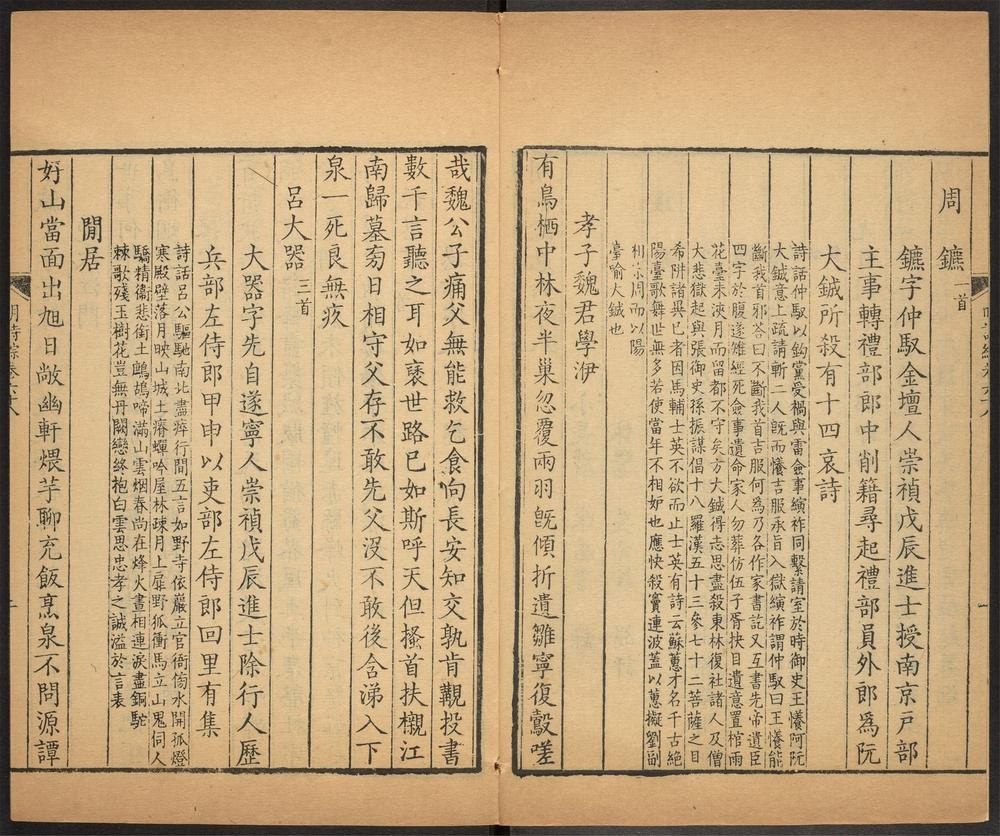 周鑣一首
鑣字仲馭金壇人崇禎戊辰進士授南京戸部
主事轉禮部郎中削籍尋起禮部員外郎爲阮
大鋮所殺有十四哀詩
詩話仲馭以鉤黨受禍與雷僉事縯祚同繫請室於時御史王懩阿阮
大鋮意上疏請斬二人旣而懩吉服承旨入獄縯祚謂仲馭曰王懩能
斷我首邪答曰不斷我首吉服何爲乃各作家書訖又互書先帝遺臣
四字於腹遂雉經死僉事遺命家人勿葬仿伍子胥抉目遺意置棺雨
花臺未浹月而留都不守矣方大鋮得志思盡殺東林復社諸人及僧
大悲獄起與張御史孫振謀倡十八羅漢五十三參七十二菩薩之目
希附諸異已者因馬輔士英不欲而止士英有詩云蘇蕙才名千古絕
陽臺歌舞世無多若使當年不相妒也應快殺竇連波蓋以蕙擬劉副
周而以陽
臺喻大鋮也
孝子魏君學洢
有鳥栖中林夜半巢忽覆兩羽旣傾折遺雛寧復鷇嗟
哉魏公子痛父無能救乞食向長安知交孰肯觀投書
數千言聽之耳如褎世路已如斯呼天但搔首扶櫬江
南歸墓旁日相守父存不敢先父沒不敢後含涕入下
泉一死良無疚
呂大器三首
大器字先自遂寧人崇禎戊辰進士除行人歷
兵部左侍郎甲申以吏部左侍郎回里有集
詩話呂公驅馳南北盡瘁行間五言如野寺依巖立官衙傍水開孤燈
寒殿壁落月映山城土瘠蟬吟屋林疎月上扉野狐衝馬立山鬼伺人
驕精衞悲銜土鷓鴣啼滿山雲烟春尚在烽火晝相連淚盡銅駝
棘歌殘玉樹花豈無丹闕戀終抱白雲思忠孝之誠溢於言表
閒居
好山當面出旭日敞幽軒煨芋聊充飯烹泉不問源譚